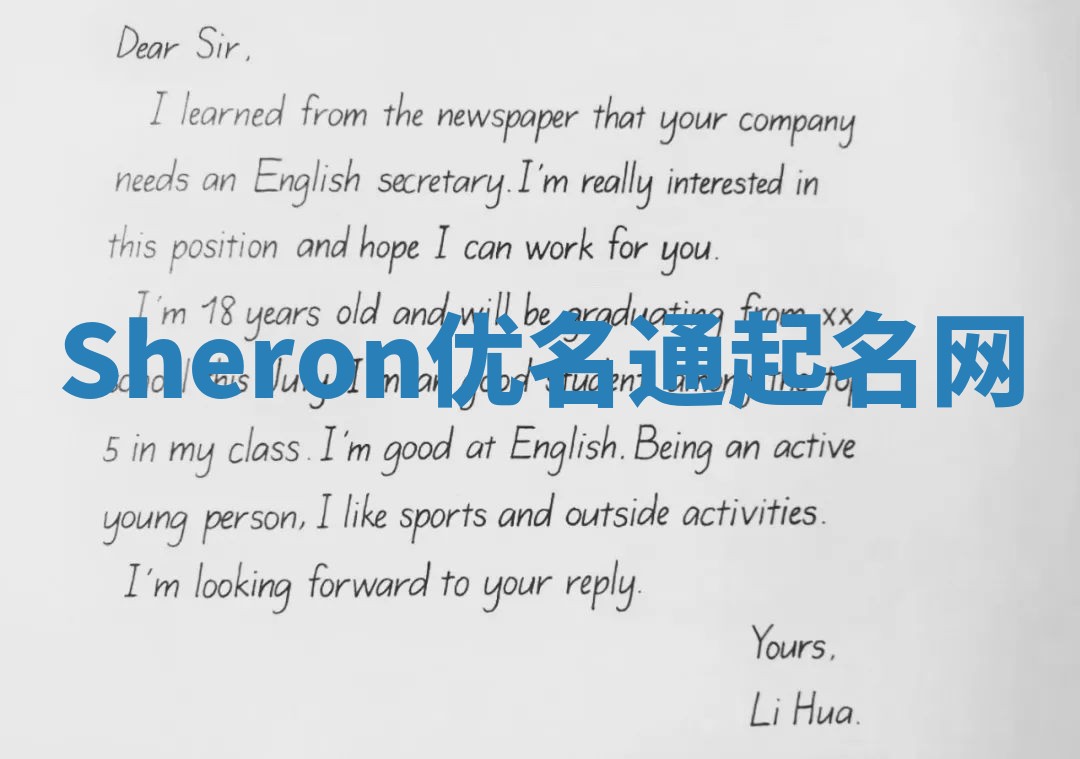 Dear Sir,
I learned from the newspaper that your company
needs an English secretary. I'm really interested in
this position and hope I can work for you.
I'm 18 years old and will be graduating from xx
Sheron优名通起名网
school this July. I'm a good student among the top
5 in my class. I'm good at English. Being an active
young person, I like sports and outside activities.
I'm looking forward to your reply.
Yours,
Li Hua.